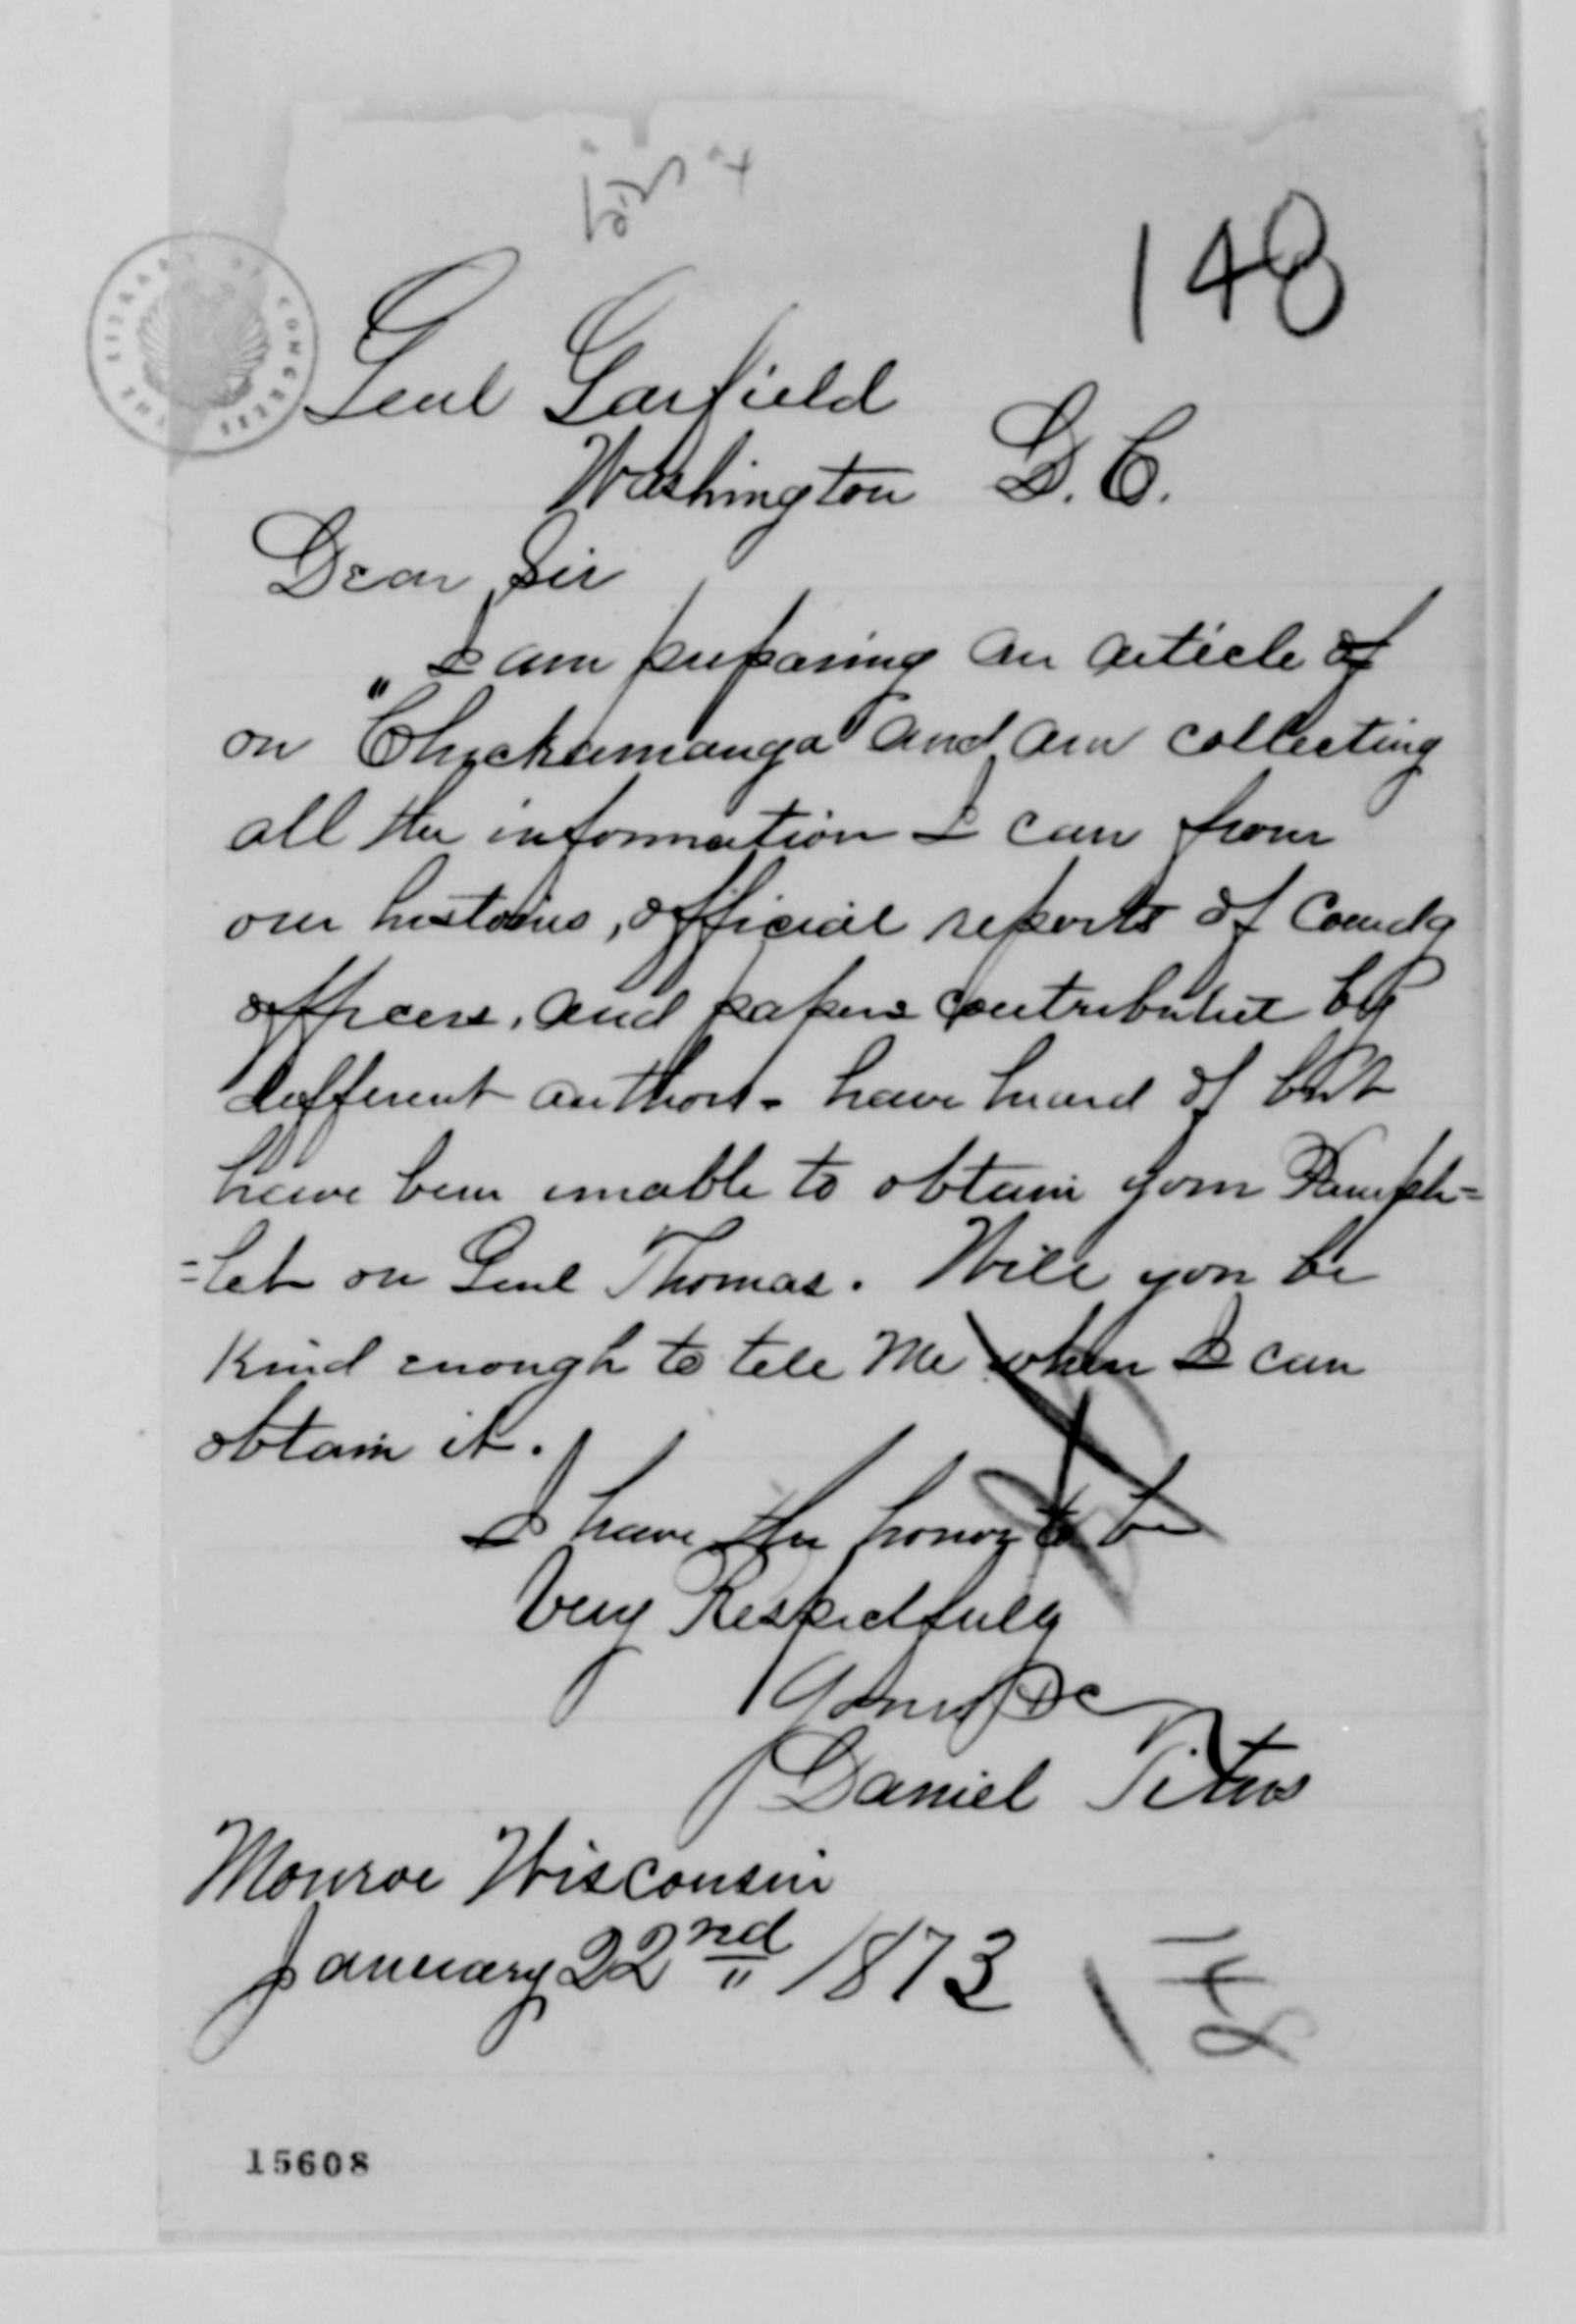 148
Genl Garfield
Washington D. C.
Dear Sir
I am preparing an article of
on "Chickamauga" and am collecting
all the information I can from
our histories, official reports of Comdg
officers, and papers contributed by
different authors - have heard of but
have been unable to obtain your Pamph=
=let on Genl Thomas. Will you be
kind enough to tell me where I can
obtain it.
I have the honor to be
Very Respectfully
Yours &c
Daniel Titus
Monroe Wisconsin
January 22nd 1873
148
15608
THE LIBRARY OF CONGRESS